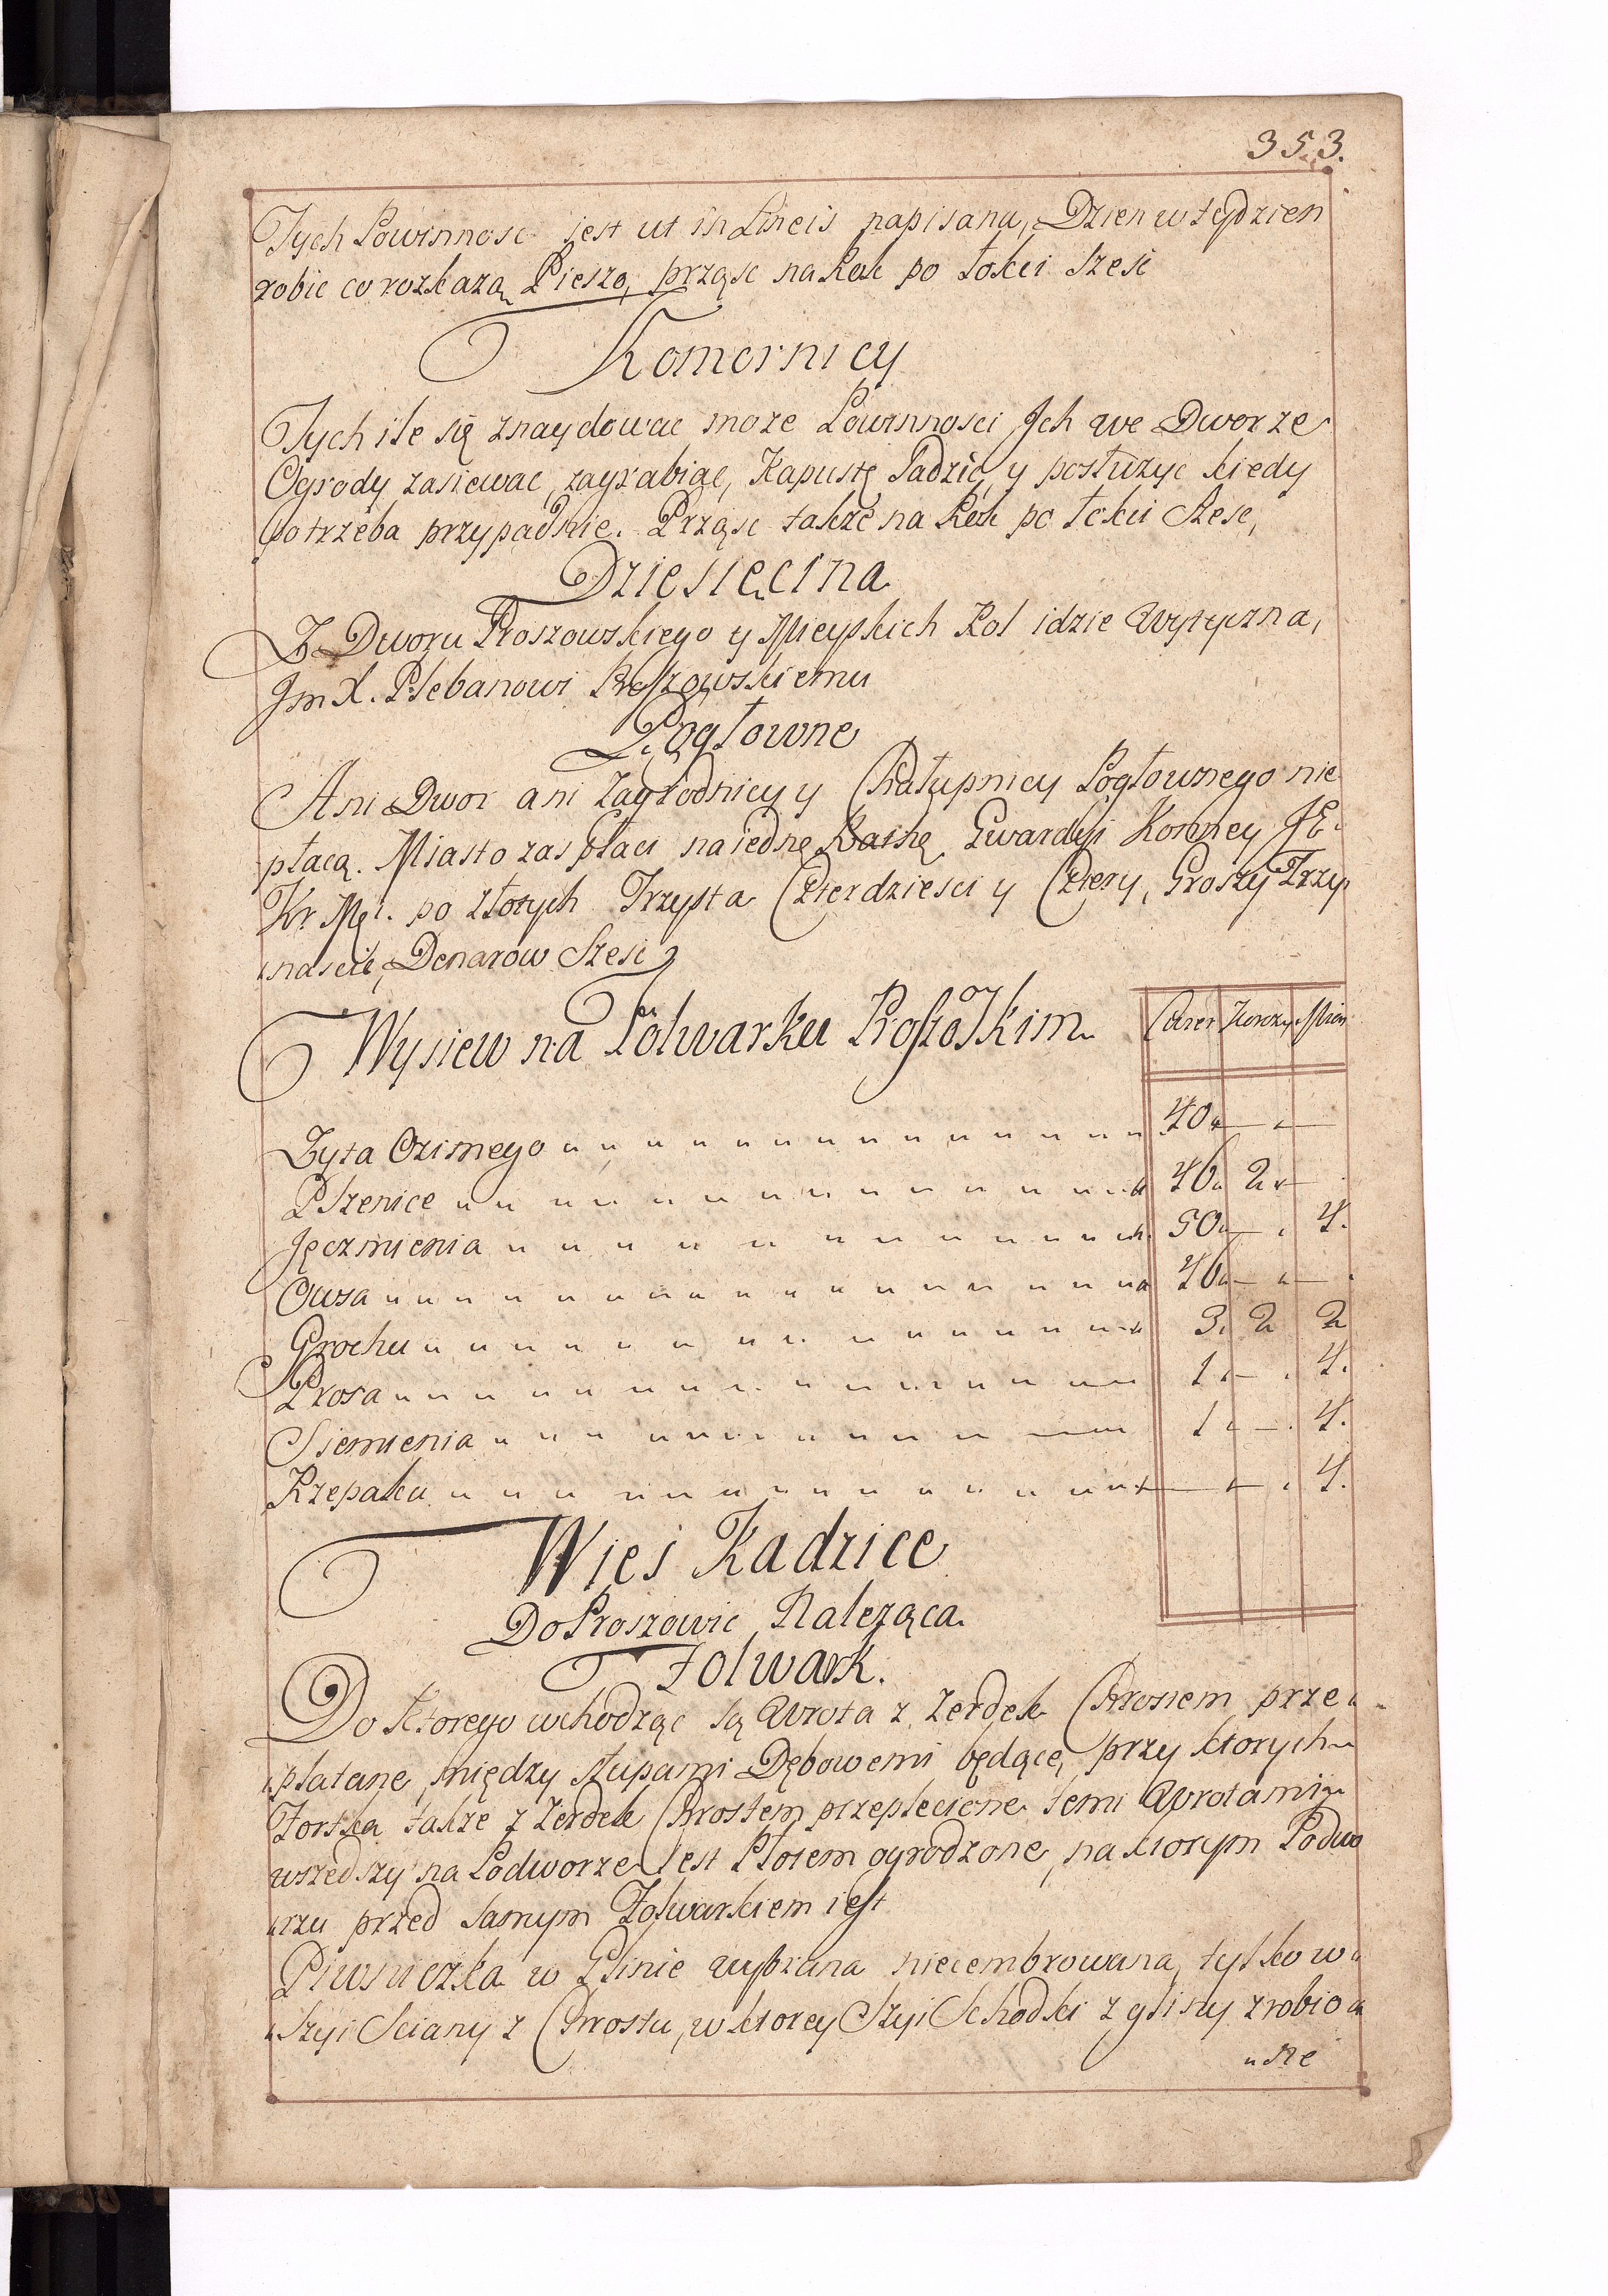 353.
Tych Powinnosc jest ut in Lineis napisana, Dzien w tydzien
robic co rozkazą Pieszo, prząsc na Rok po łokci szesc
Komornicy
Tych ile się znaydowac moze Powinnosci Jch we Dworze
Ogrody zasiewac, zagrabiac, Kapustę Sadzic, y posłuzyc kiedy
potrzeba przypadnie. Prząsc takze na Rok po łokci szesc,
Dziesięcina
Z Dworu Proszowskiego y Mieyskich Rol idzie Wytyczna,
Jm X. Plebanowi Proszowskiemu
Pogłowne
Ani Dwor ani Zagrodnicy y Chałupnicy Pogłownego nie
płacą. Miasto zas płaci na iednę Ratnę Gwardyi Konney JE.
Kr. Mci. po złotych Trzysta Czterdziesci y Cztery, Groszy Trzy
nascie, Denarow Szesc
Wysiew na Folwarku Proszoskim Korcy Miar
Zyta Ozimego 40 —
Pszenice 40 2 —
Jęczmienia 50 — 4.
Owsa 40 — —
Grochu 3. 2 2
Prosa 1 — 4.
Siemienia 1 — 4.
Rzepaku — 4.
Wies Kadzice
Do Proszowic Naleząca
Folwark.
Do ktorego wchodząc są Wrota z zerdek Chrostem prze
platane, między słupami Dębowemi będące, przy ktorych
Fortka takze z zerdek Chrostem przeplecione temi Wrotami
wszedszy na Podworze iest Płotem ogrodzone, na ktorym Podwo
rzu przed samym Folwarkiem iest
Piwniczka w Glinie wybrana niecembrowana, tylko w
szyi Sciany z Chrostu, w ktorey Szyi Schodki z gliny zrobio
ne